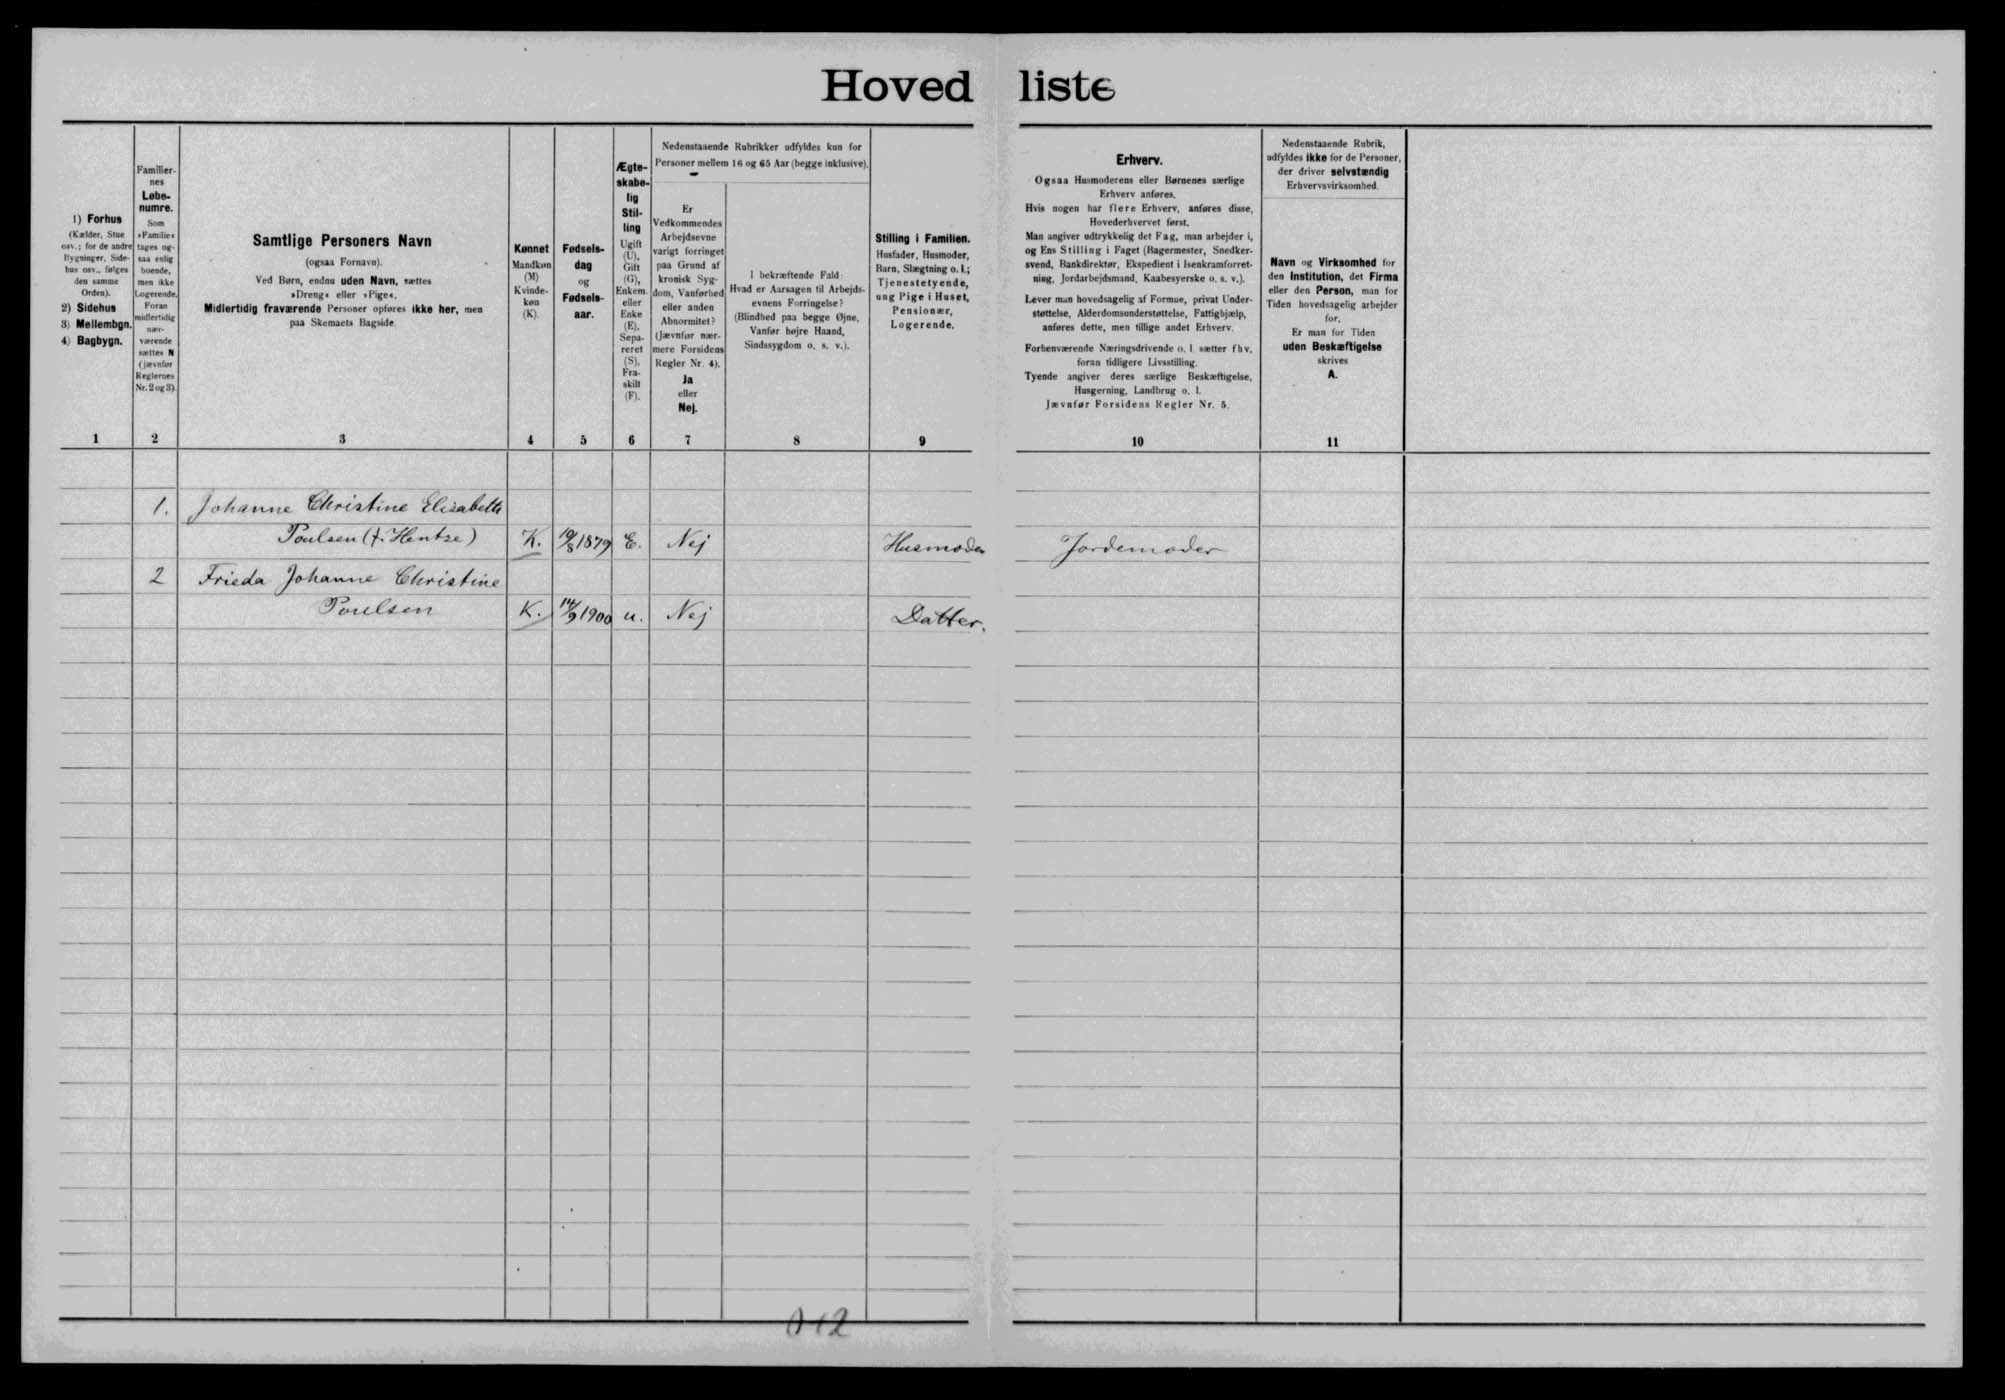 Hovedliste
1) Forhus
(Kælder, Stue
osv.; for de andre
Bygninger, Side-
hus osv., følges
den samme
Orden).
2) Sidehus
3) Mellembgn.
4) Bagbygn.
1
Familier-
nes
Løbe-
numre.
Som
»Familie«
tages og-
saa enlig
boende,
men ikke
Logerende.
Foran
midlertidig
nær-
værende
sættes N
(jævnfør
Reglernes
Nr. 2 og 3).
2
Samtlige Personers Navn
(ogsaa Fornavn).
Ved Børn, endnu uden Navn, sættes
»Dreng« eller »Pige«.
Midlertidig fraværende Personer opføres ikke her, men
paa Skemaets Bagside.
3
Kønnet
Mandkøn
(M)
Kvinde-
køn
(K).
4
Fødsels-
dag
og
Fødsels-
aar.
5
Ægte-
skabe-
lig
Stil-
ling
Ugift
(U),
Gift
(G),
Enkem.
eller
Enke
(E),
Sepa-
reret
(S),
Fra-
skilt
(F).
6
Nedenstaaende Rubrikker udfyldes kun for
Personer mellem 16 og 65 Aar (begge inklusive).
Er
Vedkommendes
Arbejdsevne
varigt forringet
paa Grund af
kronisk Syg-
dom, Vanførhed
eller anden
Abnormitet?
(Jævnfør nær-
mere Forsidens
Regler Nr. 4).
Ja
eller
Nej.
7
I bekræftende Fald:
Hvad er Aarsagen til Arbejds-
evnens Forringelse?
(Blindhed paa begge Øjne,
Vanfør højre Haand,
Sindssygdom o. s. v.).
8
Stilling i Familien.
Husfader, Husmoder,
Barn, Slægtning o. l.;
Tjenestetyende,
ung Pige i Huset,
Pensionær,
Logerende.
9
Erhverv.
Ogsaa Husmoderens eller Børnenes særlige
Erhverv anføres.
Hvis nogen har flere Erhverv, anføres disse,
Hovederhvervet først.
Man angiver udtrykkelig det Fag, man arbejder i,
og Ens Stilling i Faget (Bagermester, Snedker-
svend, Bankdirektør, Ekspedient i Isenkramforret-
ning, Jordarbejdsmand, Kaabesyerske o. s. v.).
Lever man hovedsagelig af Formue, privat Under-
støttelse, Alderdomsunderstøttelse, Fattighjælp,
anføres dette, men tillige andet Erhverv.
Forhenværende Næringsdrivende o. l. sætter fhv.
foran tidligere Livsstilling.
Tyende angiver deres særlige Beskæftigelse,
Husgerning, Landbrug o. l.
Jævnfør Forsidens Regler Nr. 5.
10
Nedenstaaende Rubrik,
udfyldes ikke for de Personer,
der driver selvstændig
Erhvervsvirksomhed.
Navn og Virksomhed for
den Institution, det Firma
eller den Person, man for
Tiden hovedsagelig arbejder
for.
Er man for Tiden
uden Beskæftigelse
skrives
A.
11
1. Johanne Christine Elisabeth
Poulsen (f. Hentze) K. 19/8 1879 E. Nej Husmoder Jordemoder
2 Frieda Johanne Christine
Poulsen K. 14/9 1900 u. Nej Datter.